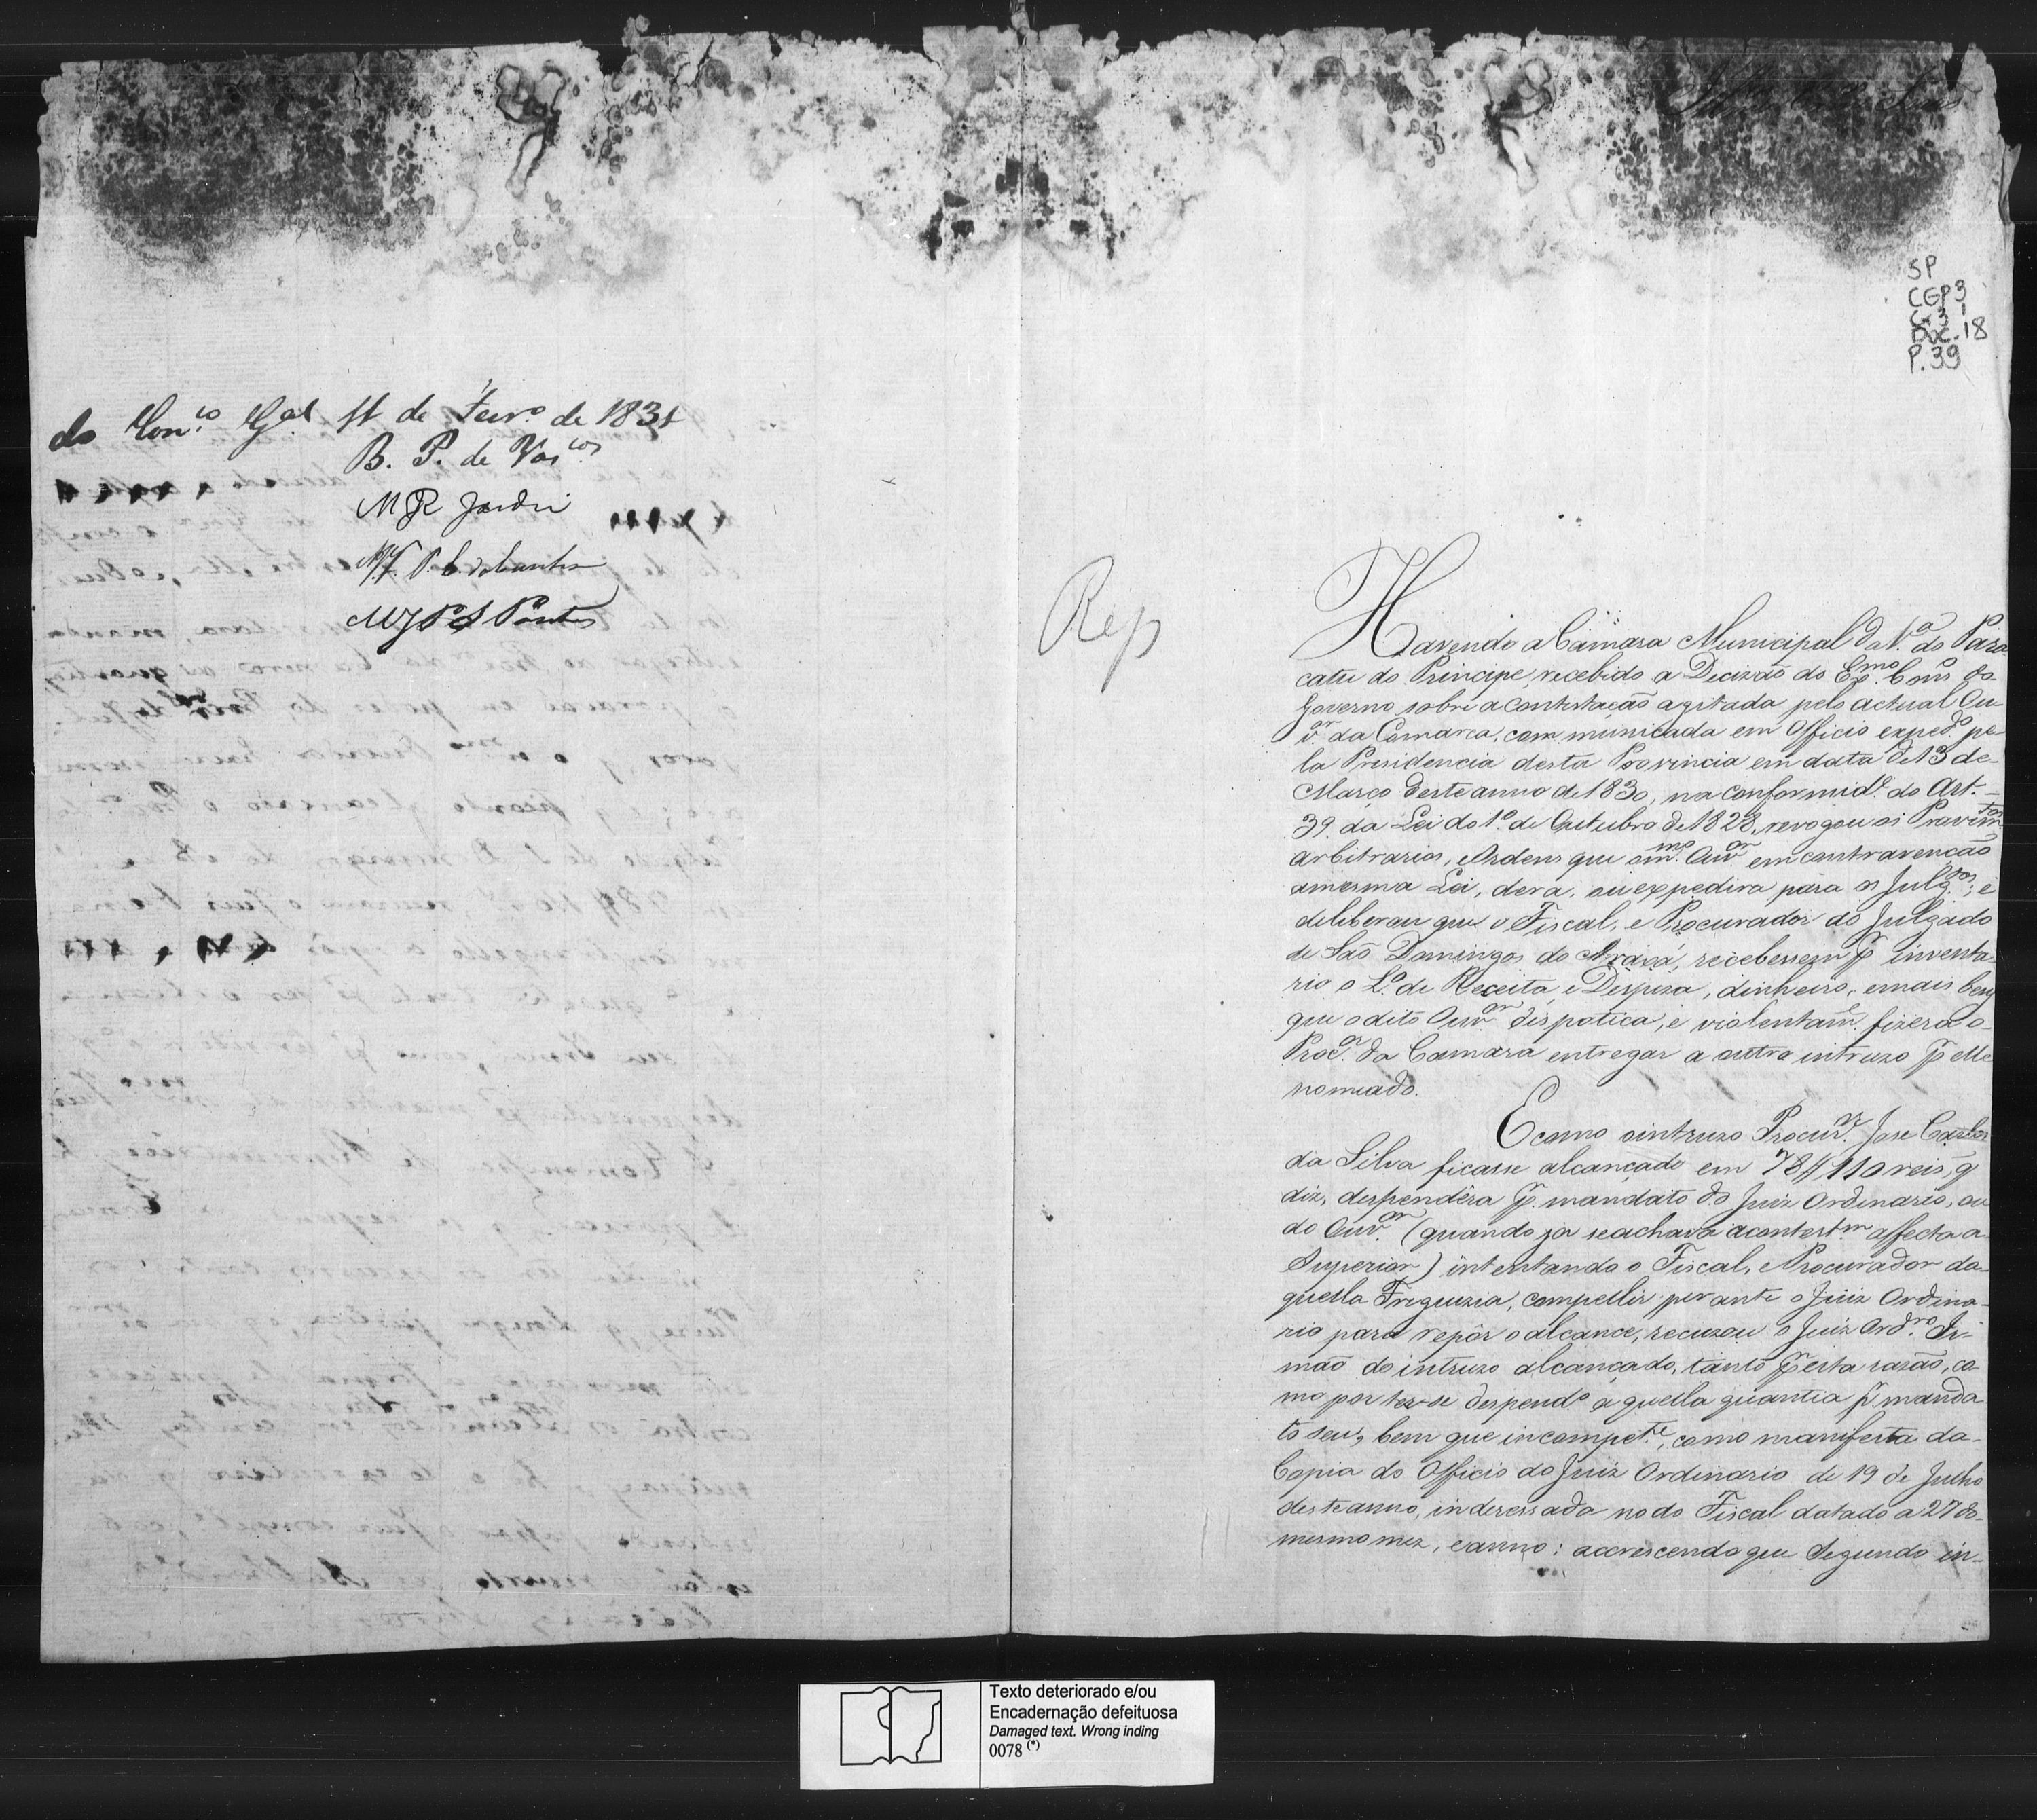 do Con.co G.al 11 de Fevr.o de 1831
B. P. de Vas.cos
M J R Jardi
M J P S Pontes
SP
CGP3
Cx 31
Doc. 18
P. 39
Rep
Havendo a Câmara Municipal da V.a do Para-
catu do Principe, recebido a Decizão do Ex.mo Cons do
Governo sobre a contestação agitada pelo actual Ou-
v.or da Comarca, communicada em Officio exped.o pe-
la Presidencia desta Provincia em data de 13 de
Março deste anno de 1830, na conformid.e do Art.
39. da Lei do 1.o de Outubro de 1828, revogou os Provim.tos
arbitrarios, e Ordens que o m.mo Ouv.or em contravenção
a mesma Lei, dera, ou expedira para os Julg.dos; e
deliberou que o Fiscal, e Procurador do Julgado
de São Domingos do Araxá, recebessem p inventa-
rio o L.o de Receita, e Despeza, dinheiro, e mais bens
que o dito Ouv.or dispotica, e violentam.e fizera o
Proc.or da Camara entregar a outro intruzo p elle
nomeado.
E como o intruzo Procur.or Jose Carlos
da Silva ficasse alcançado em 78//110 reis, q
diz, despendêra p. mandato do Juiz Ordinario, ou
do Ouv.or (quando ja se achava a contest.m affecta a
Superior) intentando o Fiscal, e Procurador da-
quella Freguezia, compellir perante o Juiz Ordina-
rio para repôr o alcance, recuzou o Juiz Ord.ro Ir-
mão do intruzo alcançado, tanto p esta razão, co-
mo por ter-se despend.o a quella quantia p manda-
to seu, bem que incompet.e, como manifesta da
Copia do Officio do Juiz Ordinario de 19 de Julho
deste anno, inderessada no do Fiscal datado a 27 do
mesmo mez, e anno: accrescendo que segundo in-
Texto deteriorado e/ou
Encadernação defeituosa
Damaged text. Wrong inding
0078 (*)